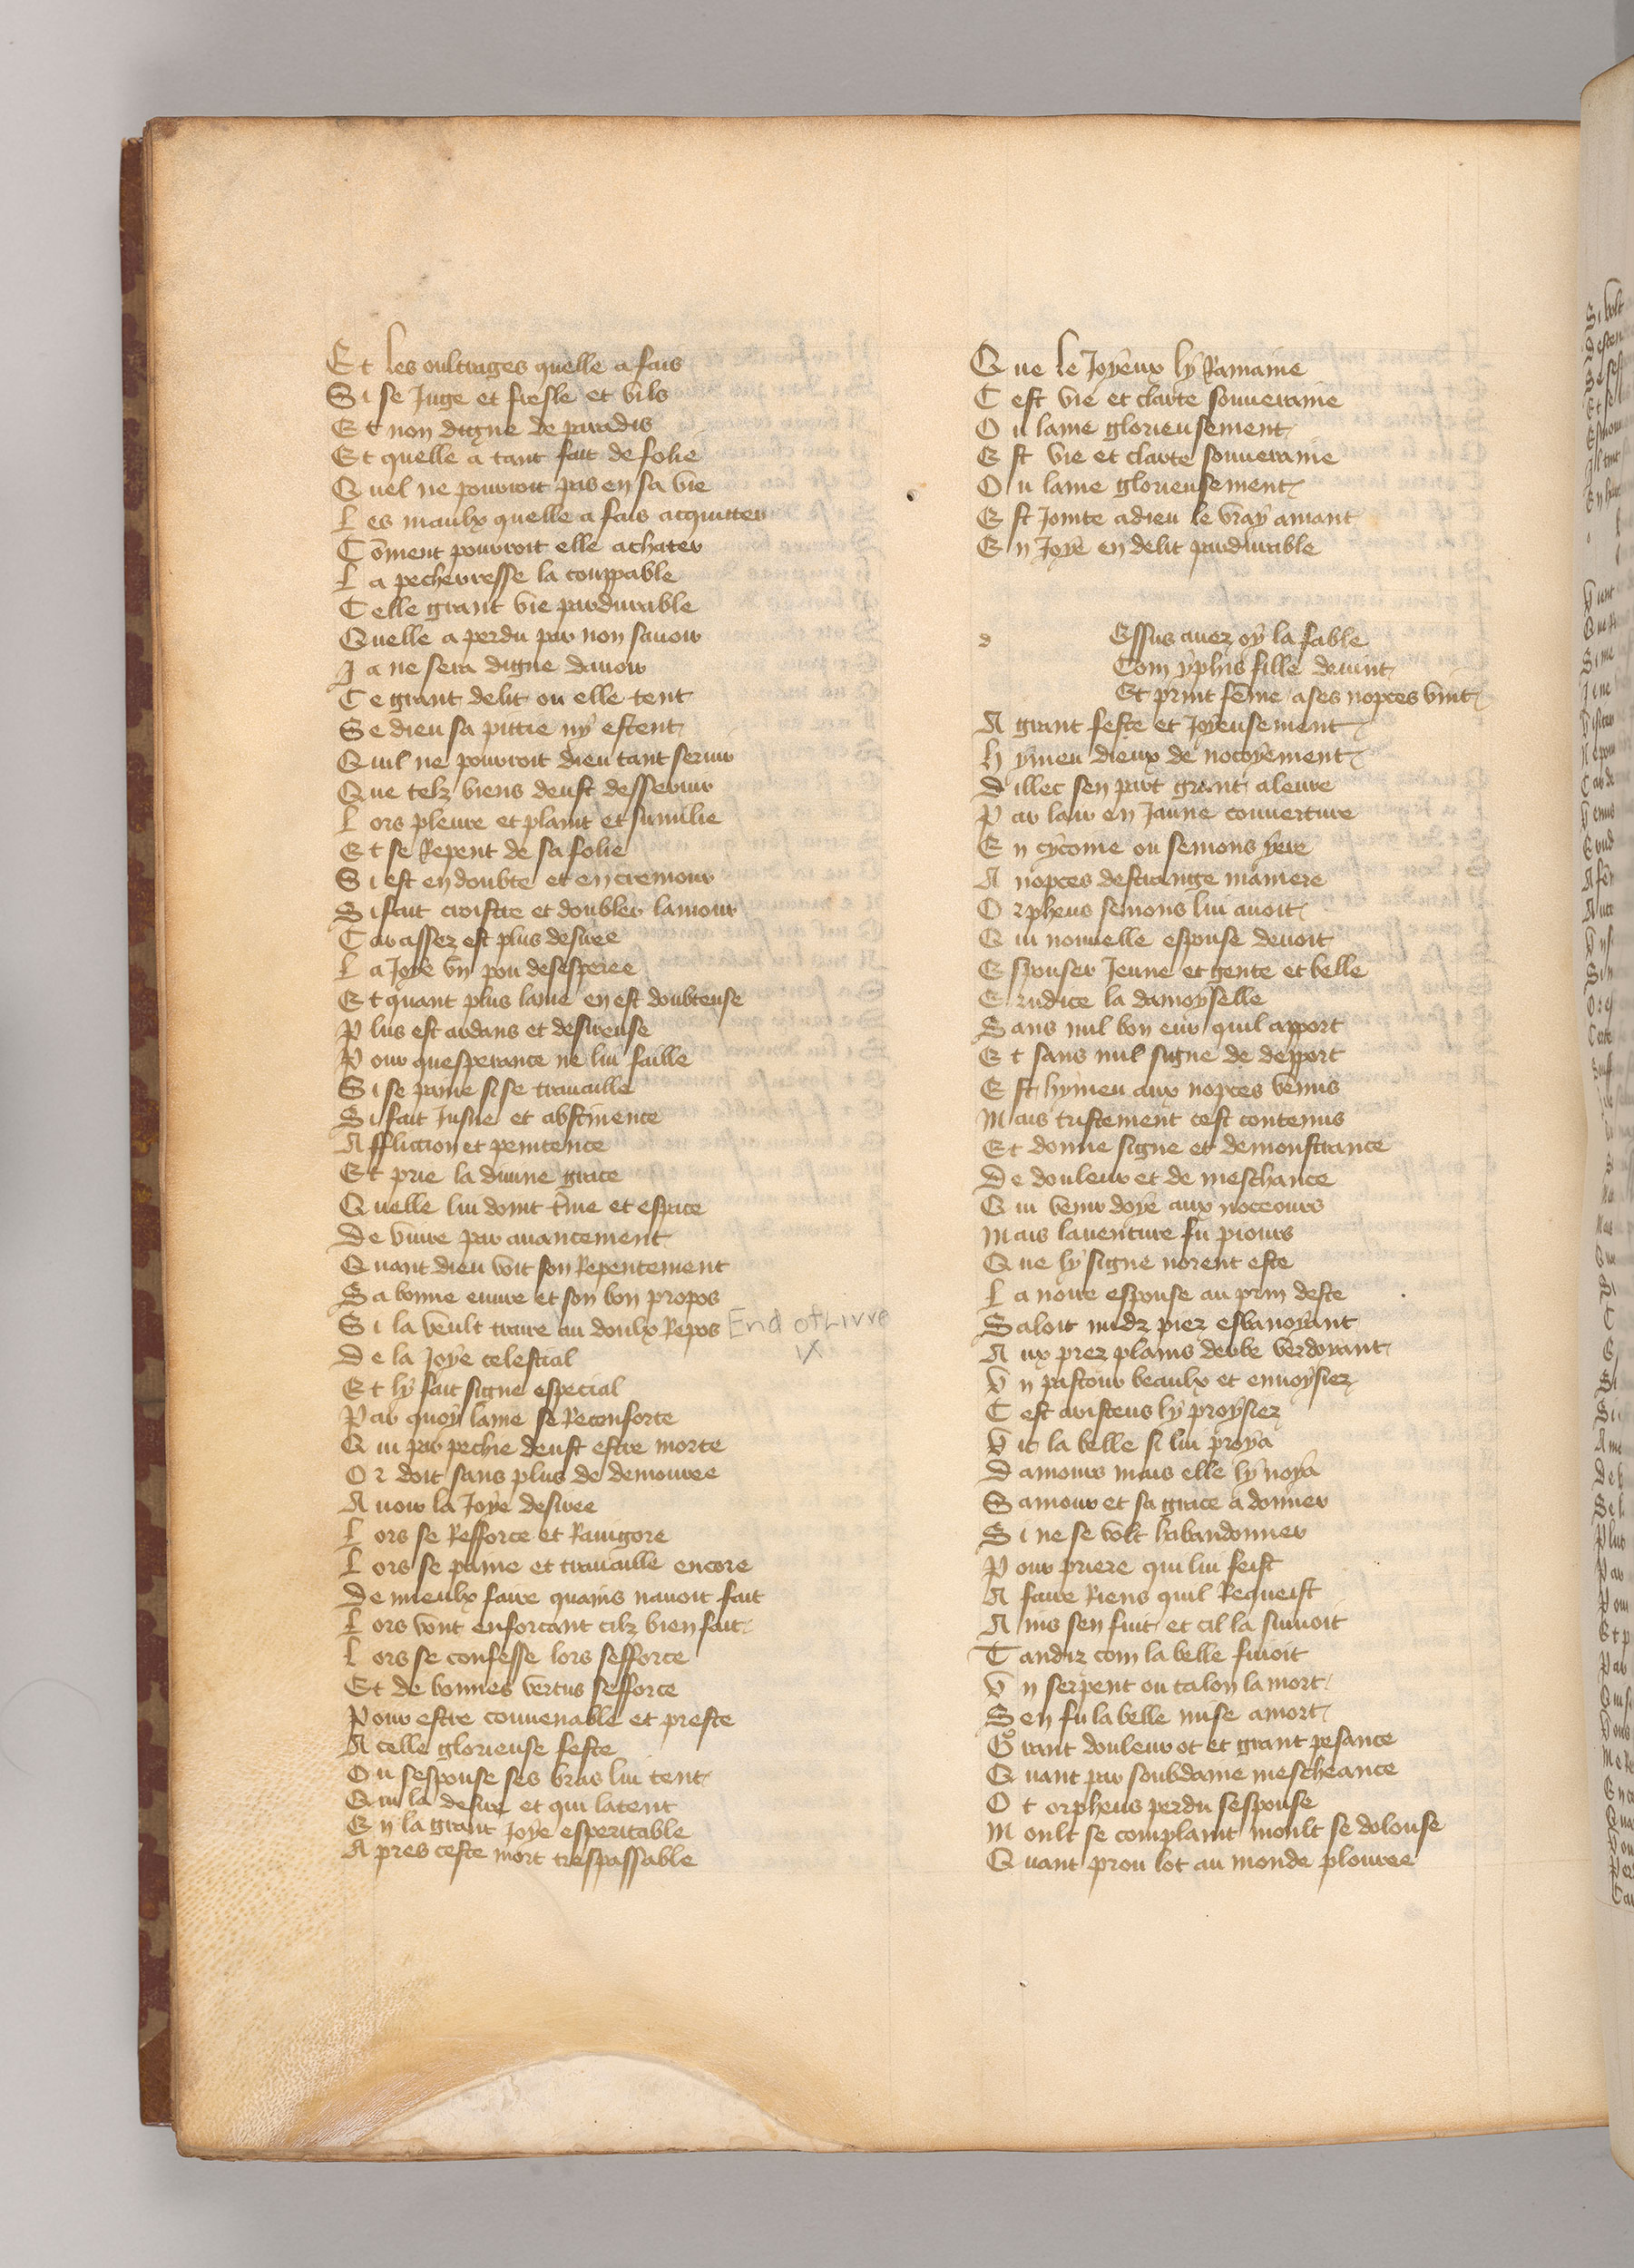 Et les oultrages quelle a fais
Si se Juge et fresle et vils
Et non digne de paradis
Et quelle a tant fait de folie
Quel ne pourroit pas en sa vie
Les maulx quelle a fais acquitter
Coment pourroit elle achater
La pecherresse la couppable
Celle grant vie pardurable
Quelle a perdu par non sauoir
Ja ne sera digne dauoir
Ce grant delit ou elle tent
Se dieu sa pittie ny estent
Quil ne pourroit dieu tant seruir
Que telz biens deust desseruir
Lors pleure et plaint et sumilie
Et se Repent de sa folie
Si est en doubte et en cremour
Si fait croistre et doubler lamour
Car assez est plus desiree
La Joye vn pou desesperee
Et quant plus lame en est doubteuse
Plus est ardans et desireuse
Pour quesperance ne lui faille
Si se paine si se trauaille
Si fait Jusne et abstinence
Affliction et penitence
Et prie la diuine grace
Quelle lui doint tme et espace
De viure par auancement
Quant dieu voit son Repentement
Sa bonne euure et son bon propos
Si la veult traire au doulx Repos
End of Livre
IX
De la Joye celestial
Et ly fait signe especial
Par quoy lame se Reconforte
Qui par pechie deust estre morte
Or doit sans plus de demouree
Auoir la Joye desiree
Lors se Refforce et Rauigore
Lors se paine et trauaille encore
De mieulx faire quains nauoit fait
Lors vont enforcant cilz bien fait
Lors se confesse lors sefforce
Et de bonnes vertus sefforce
Pour estre conuenable et preste
A celle glorieuse feste
Ou sespouse ses bras lui tent
Qui la desire et qui latent
En la grant Joye esperitable
Apres ceste mort trespassable
Que le Joyeux ly Ramaine
Cest vie et clarte souueraine
Ou lame glorieusement
Est vie et clarte souueraine
Ou lame glorieusement
Est Jointe a dieu le vray amant
En Joye en delit pardurable
d Essus auez oy la fable
Com yphis fille deuint
Et print feme a ses nopces vint
A grant feste et Joyeusement
hymen dieux de nocoyement
Dillec sen part grant aleure
Par lair en Jaune couuerture
En cyconie ou semons yere
A nopces destrange maniere
Orpheus semons lui auoit
Qui nouuelle espouse deuoit
Espouser Jeune et gente et belle
Erudice la damoyselle
Sans nul bon eur quil apport
Et sans nul signe de depport
Est hymen aux nopces venus
Mais tristement cest contenus
Et donne signe et demonstrance
De douleur et de meschance
Qui venir doye aux noceours
Mais lauenture fu piours
Que ly signe norent este
La noue espouse au prin deste
Saloit nudz piez esbanoyant
Aux prez plains derbe verdoyant
Vn pastour beaulx et enuoysiez
Cest aristeus ly proysiez
Vit la belle si lui proya
Damours mais elle ly noya
Samour et sa grace a donner
Si ne se volt habandonner
Pour priere qui lui feist
A faire Riens quil Requeist
Ains sen fuit et cil la suiuoit
Tandiz com la belle fuioit
Vn serpent ou talon la mort
Sen fu la belle mise a mort
Grant douleur ot et grant pesance
Quant par soubdaine mescheance
Ot orpheus perdu sespouse
Moult se complaint moult se dolouse
Quant prou lot au monde plouree